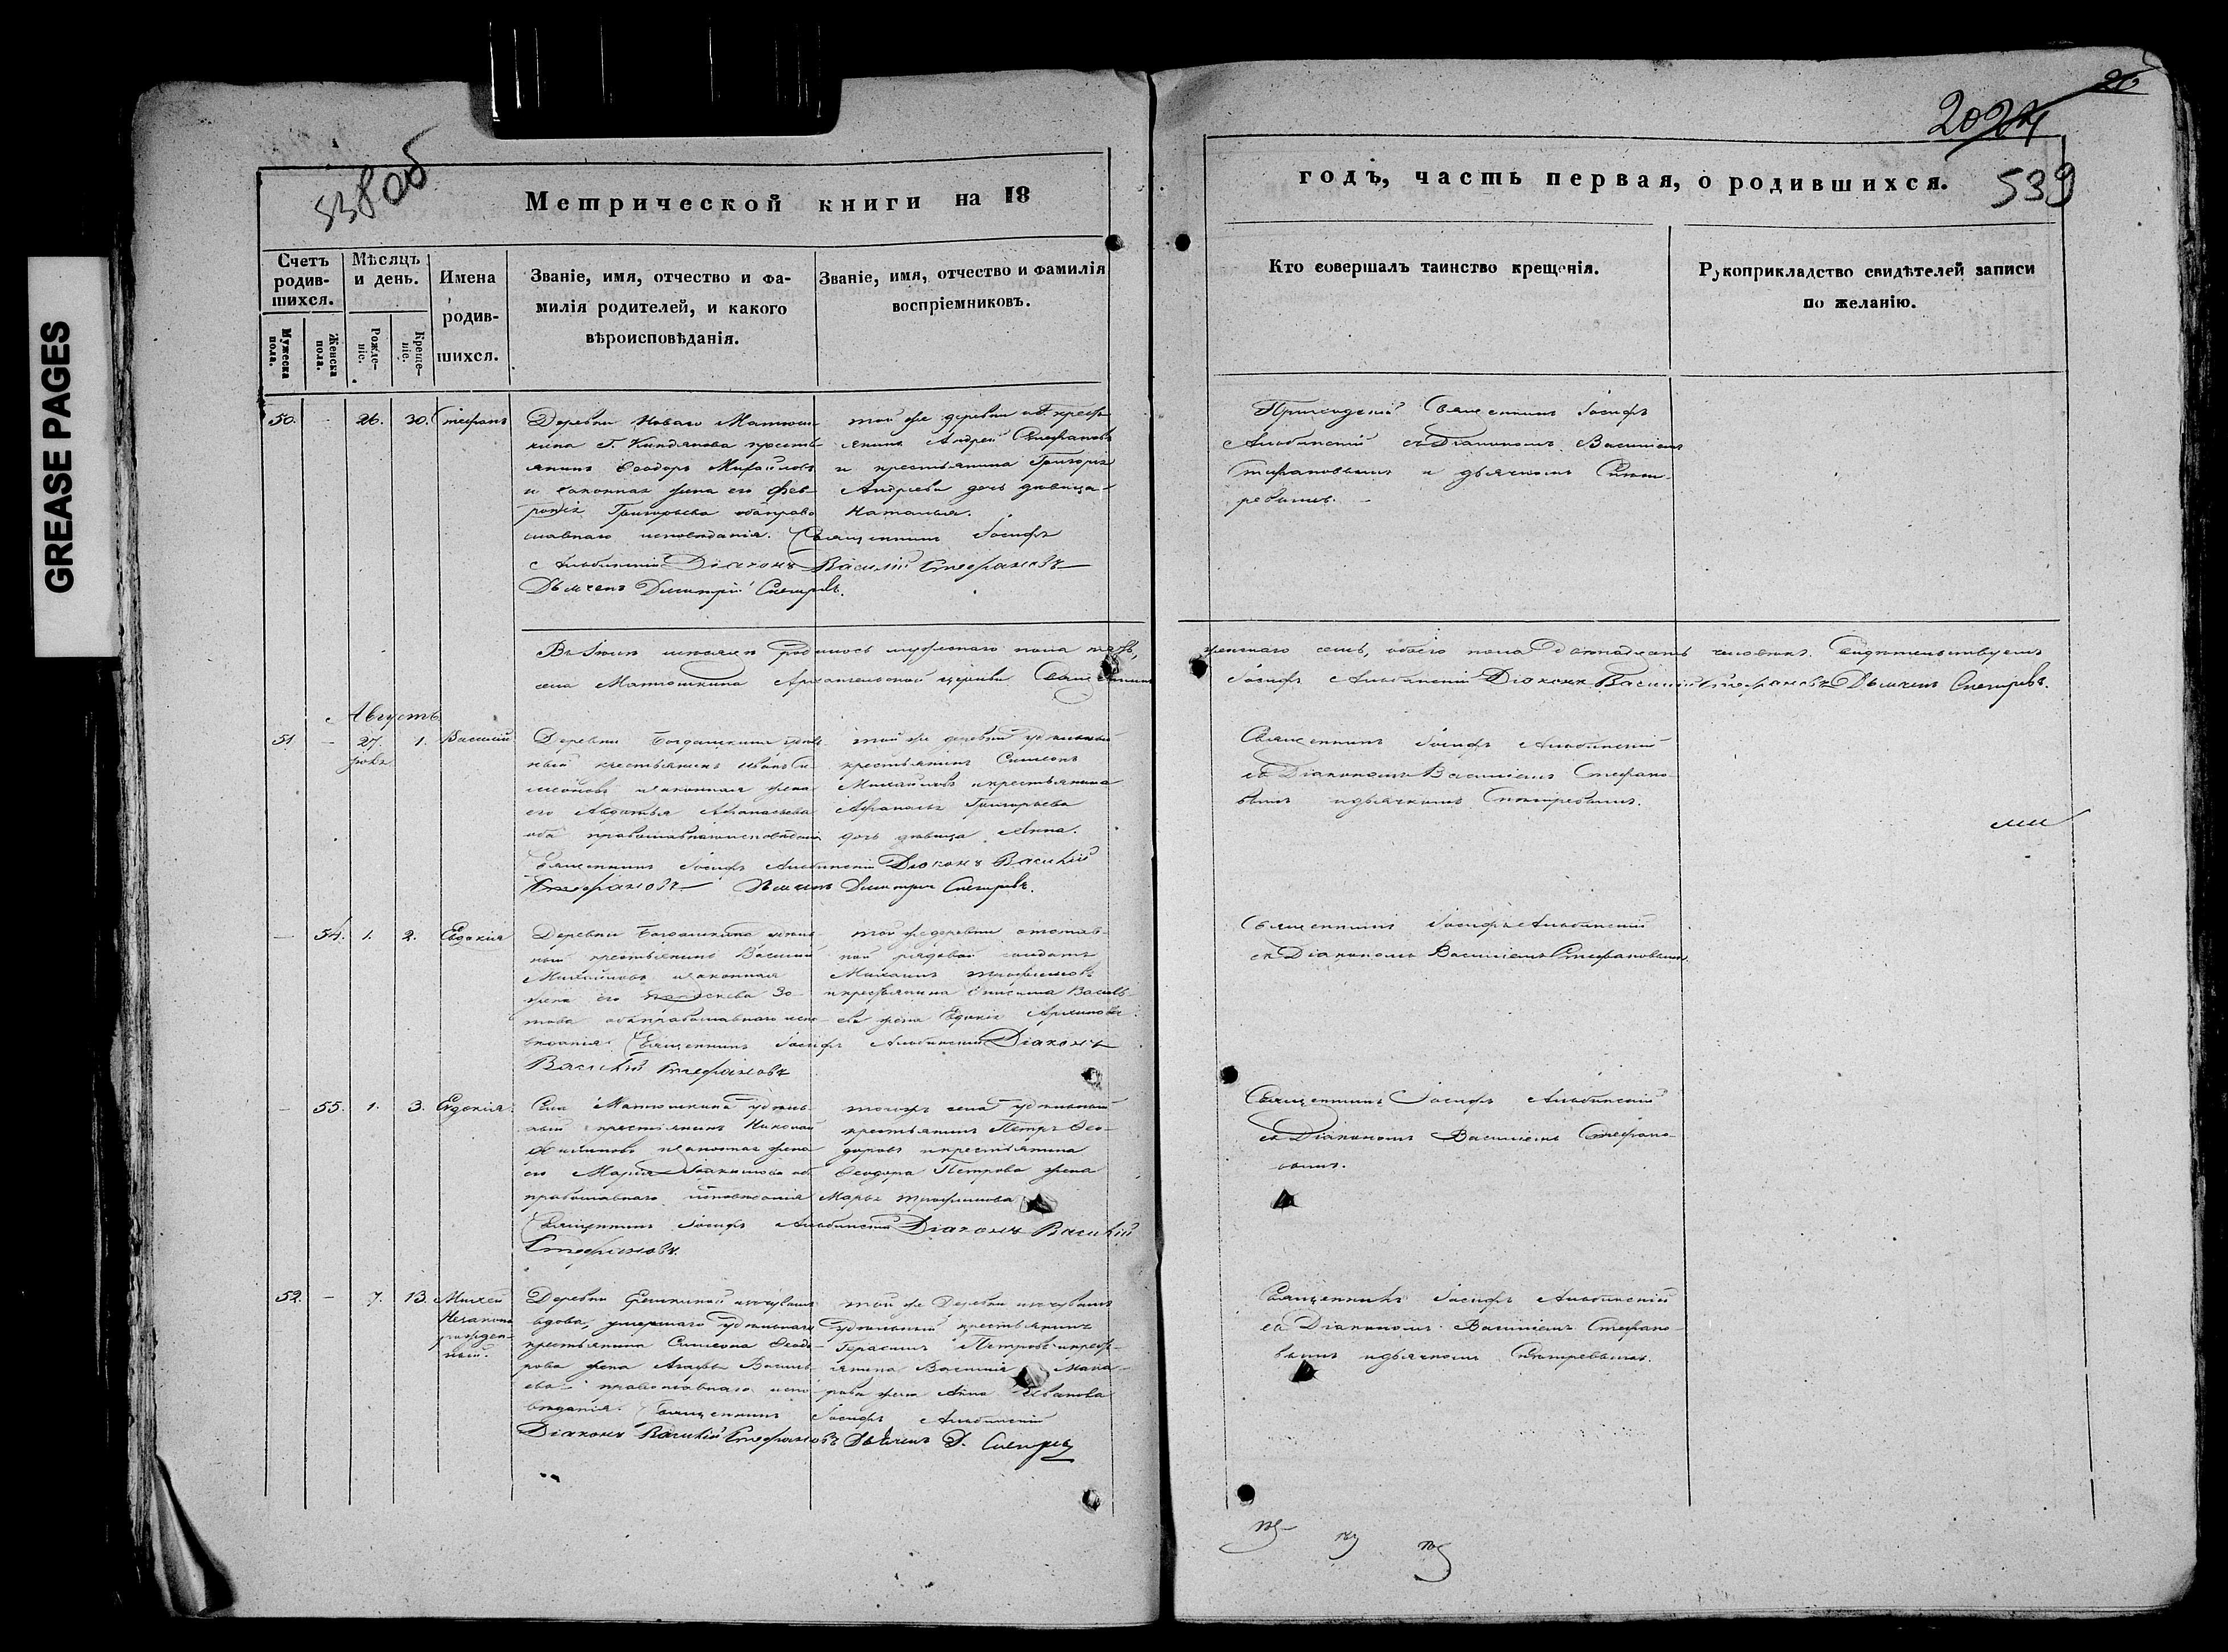 GREASE PAGES
538об
Метрической книги на 18
Счетъ родившихся.
Мужеска пола.
Женска пола.
Мѣсяцъ и день.
Рожденіе.
Крещеніе.
Имена родившихся.
Званіе, имя, отчество и фамилія родителей, и какого вѣроисповѣданія.
Званіе, имя, отчество и фамилія воспріемниковъ.
50. - 26. 30. Стефанъ
Деревни Новаго Матюш-
кина Г. Киндякова кресть-
янинъ Ѳеодоръ Михайловъ
и законная жена его Фев-
ронія Григорьева оба право
славнаго исповѣданія. Священникъ Іосифъ
Альбинскій Діаконъ Василій Стефановъ
Дьячекъ Димитрій Снегиревъ.
той же деревни
янинъ Андрей Стефановъ
и крестьянина Григорія
Андреева дочь дѣвица
Наталья.
Въ Іюлѣ мѣсяцѣ родилось мужескаго пола
села Матюшкина Архангельской церкви Священникъ
Августъ
51. - 27. 1. Василій
Іюля
Деревни Богдашкина удѣль
ный крестьянинъ Иванъ Си-
меоновъ и законная жена
его Авдотья Афанасьева
оба православнаго исповѣданія
Священникъ Іосифъ Альбинскій Діаконъ Василій
Стефановъ Дьячекъ Димитрій Снегиревъ.
той же деревни удѣльный
крестьянинъ Симеонъ
Михайловъ и крестьянина
Григорьева
дочь дѣвица Анна.
- 54. 1. 2. Евдокія
Деревни Богдашкина удѣль
ный крестьянинъ Василій
Михайловъ и законная
жена его Параскева Зо-
това оба православнаго испо-
вѣданія. Священникъ Іосифъ Альбинскій Діаконъ
Василій Стефановъ
той же деревни отстав-
ной рядовой солдатъ
Михаилъ Трофимовъ
и крестьянина Онисима Василь-
ева жена Евдокія Архипова.
- 55. 1. 3. Евдокія.
Села Матюшкина удѣль-
ный крестьянинъ Николай
и законная жена
его Марія Іоакимова оба
православнаго исповѣданія
Священникъ Іосифъ Альбинскій Діаконъ Василій
Стефановъ.
тогожъ села удѣльный
крестьянинъ Петръ Ѳео-
доровъ и крестьянина
Ѳеодора Петрова жена
Марья Трофимова
52. - 7. 13. Михей
Незаконо
рожден-
ный.
Деревни
вдова, умершаго удѣльнаго
крестьянина Симеона Ѳеодо-
рова жена Агафья Василь-
ева православнаго испо-
вѣданія. Священникъ Іосифъ Альбинскій
Діаконъ Василій Стефановъ Дьячекъ Д. Снегиревъ
той же Деревни
удѣльный крестьянинъ
Герасимъ Петровъ и крес-
янина Василія Мака-
рова жена Анна Иванова
539
годъ, часть первая, о родившихся.
Кто совершалъ таинство крещенія.
Рукоприкладство свидѣтелей записи по желанію.
Приходскій Священникъ Іосифъ
Альбинскій съ Діакономъ Василіемъ
Стефановымъ и дьячкомъ Снеги-
ревымъ.
женскаго семь, обоего пола двѣнадцать человѣкъ. Свидѣтельствуемъ
Іосифъ Альбинскій Діаконъ Василій Стефановъ Дьячекъ Снегиревъ.
Священникъ Іосифъ Альбинскій
съ Діакономъ Василіемъ Стефано-
вымъ и дьячкомъ Снегиревымъ.
Священникъ Іосифъ Альбинскій
съ Діакономъ Василіемъ Стефановымъ.
Священникъ Іосифъ Альбинскій
съ Діакономъ Василіемъ Стефано-
вымъ.
Священникъ Іосифъ Альбинскій
съ Діакономъ Василіемъ Стефано-
вымъ и дьячкомъ Снегиревымъ.